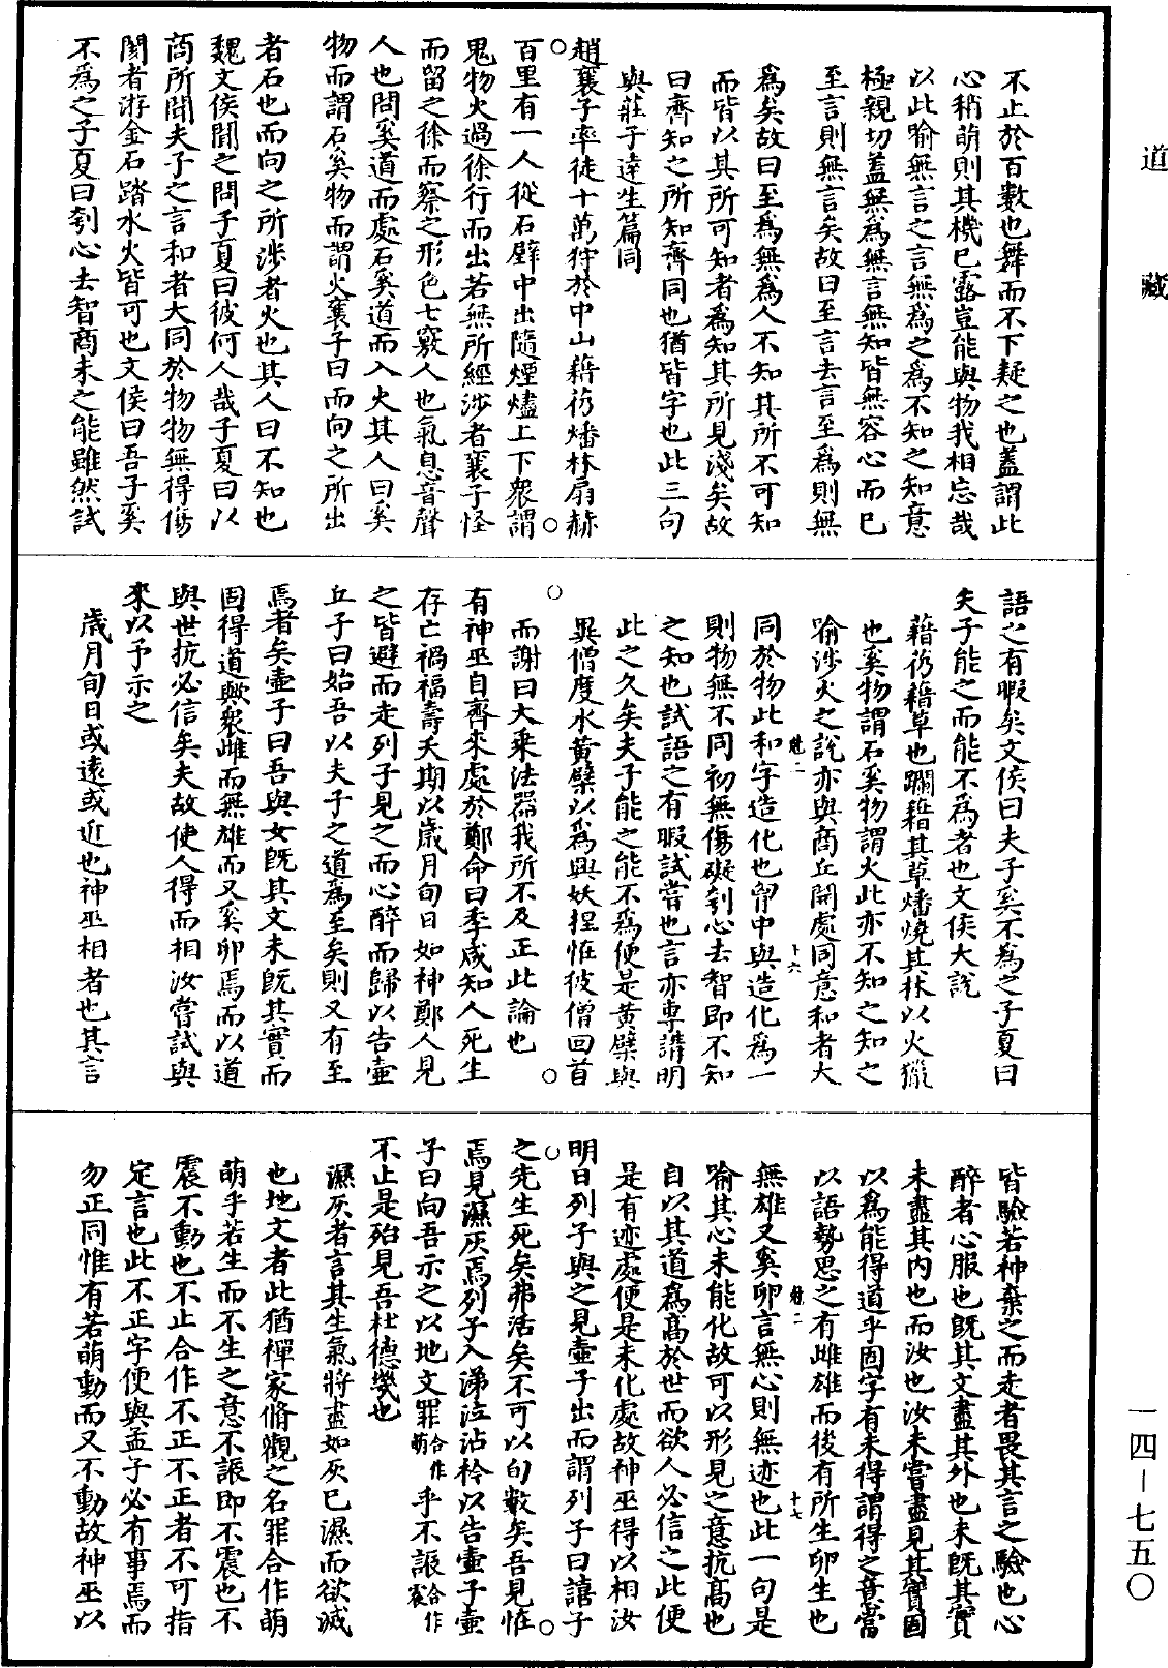 道藏
不止於百數也舞而不下疑之也蓋謂此
心稍萌則其機已露豈能與物我相忘哉
以此喻無言之言無爲之爲不知之知意
極親切蓋無爲無言無知皆無容心而已
至言則無言矣故曰至言去言至爲則無
爲矣故曰至爲無爲人不知其所不可知
而皆以其所可知者爲知其所見淺矣故
曰齊知之所知齊同也猶皆字也此三句
與莊子達生篇同
趙襄子率徒十萬狩於中山藉芿燔林扇赫
百里有一人從石壁中出隨煙燼上下衆謂
鬼物火過徐行而出若無所經涉者襄子怪
而留之徐而察之形色七竅人也氣息音聲
人也問奚道而處石奚道而入火其人曰奚
物而謂石奚物而謂火襄子曰而向之所出
者石也而向之所涉者火也其人曰不知也
魏文侯聞之問子夏曰彼何人哉子夏曰以
商所聞夫子之言和者大同於物物無得傷
閡者游金石蹈水火皆可也文侯曰吾子奚
不爲之子夏曰刳心去智商未之能雖然試
語之有暇矣文侯曰夫子奚不爲之子夏曰
夫子能之而能不爲者也文侯大說
藉芿藉草也躪藉其草燔燒其林以火獵
也奚物謂石奚物謂火此亦不知之知之
喻涉火之說亦與商丘開處同意和者大
同於物此和字造化也胷中與造化爲一
則物無不同初無傷礙刳心去智即不知
之知也試語之有暇試嘗也言亦專講明
此之久矣夫子能之能不爲便是黃櫱與
異僧度水黃櫱以爲興妖捏恠彼僧回首
而謝曰大乘法器我所不及正此論也
有神巫自齊來處於鄭命曰季咸知人死生
存亡禍福壽夭期以歲月旬日如神鄭人見
之皆避而走列子見之而心醉而歸以告壺
丘子曰始吾以夫子之道爲至矣則又有至
焉者矣壺子曰吾與女旣其文未旣其實而
固得道歟衆雌而無雄而又奚卵焉而以道
與世抗必信矣夫故使人得而相汝嘗試與
來以予示之
歲月旬日或遠或近也神巫相者也其言
皆驗若神棄之而走者畏其言之驗也心
醉者心服也旣其文盡其外也未旣其實
未盡其內也而汝也汝未嘗盡見其實固
以爲能得道乎固字有未得謂得之意當
以語勢思之有雌雄而後有所生卵生也
無雄又奚卵言無心則無迹也此一句是
喻其心未能化故可以形見之意抗高也
自以其道爲高於世而欲人必信之此便
是有迹處便是未化處故神巫得以相汝
明日列子與之見壺子出而謂列子曰譆子
之先生死矣弗活矣不可以旬數矣吾見恠
焉見濕灰焉列子入涕泣沾衿以告壺子壺
子曰向吾示之以地文罪合作萌乎不誫合作震
不止是殆見吾杜德幾也
濕灰者言其生氣將盡如灰已濕而欲滅
也地文者此猶禪家脩觀之名罪合作萌
萌乎若生而不生之意不誫即不震也不
震不動也不止合作不正不正者不可指
定言也此不正字便與孟子必有事焉而
勿正同惟有若萌動而又不動故神巫以
一四－七五〇